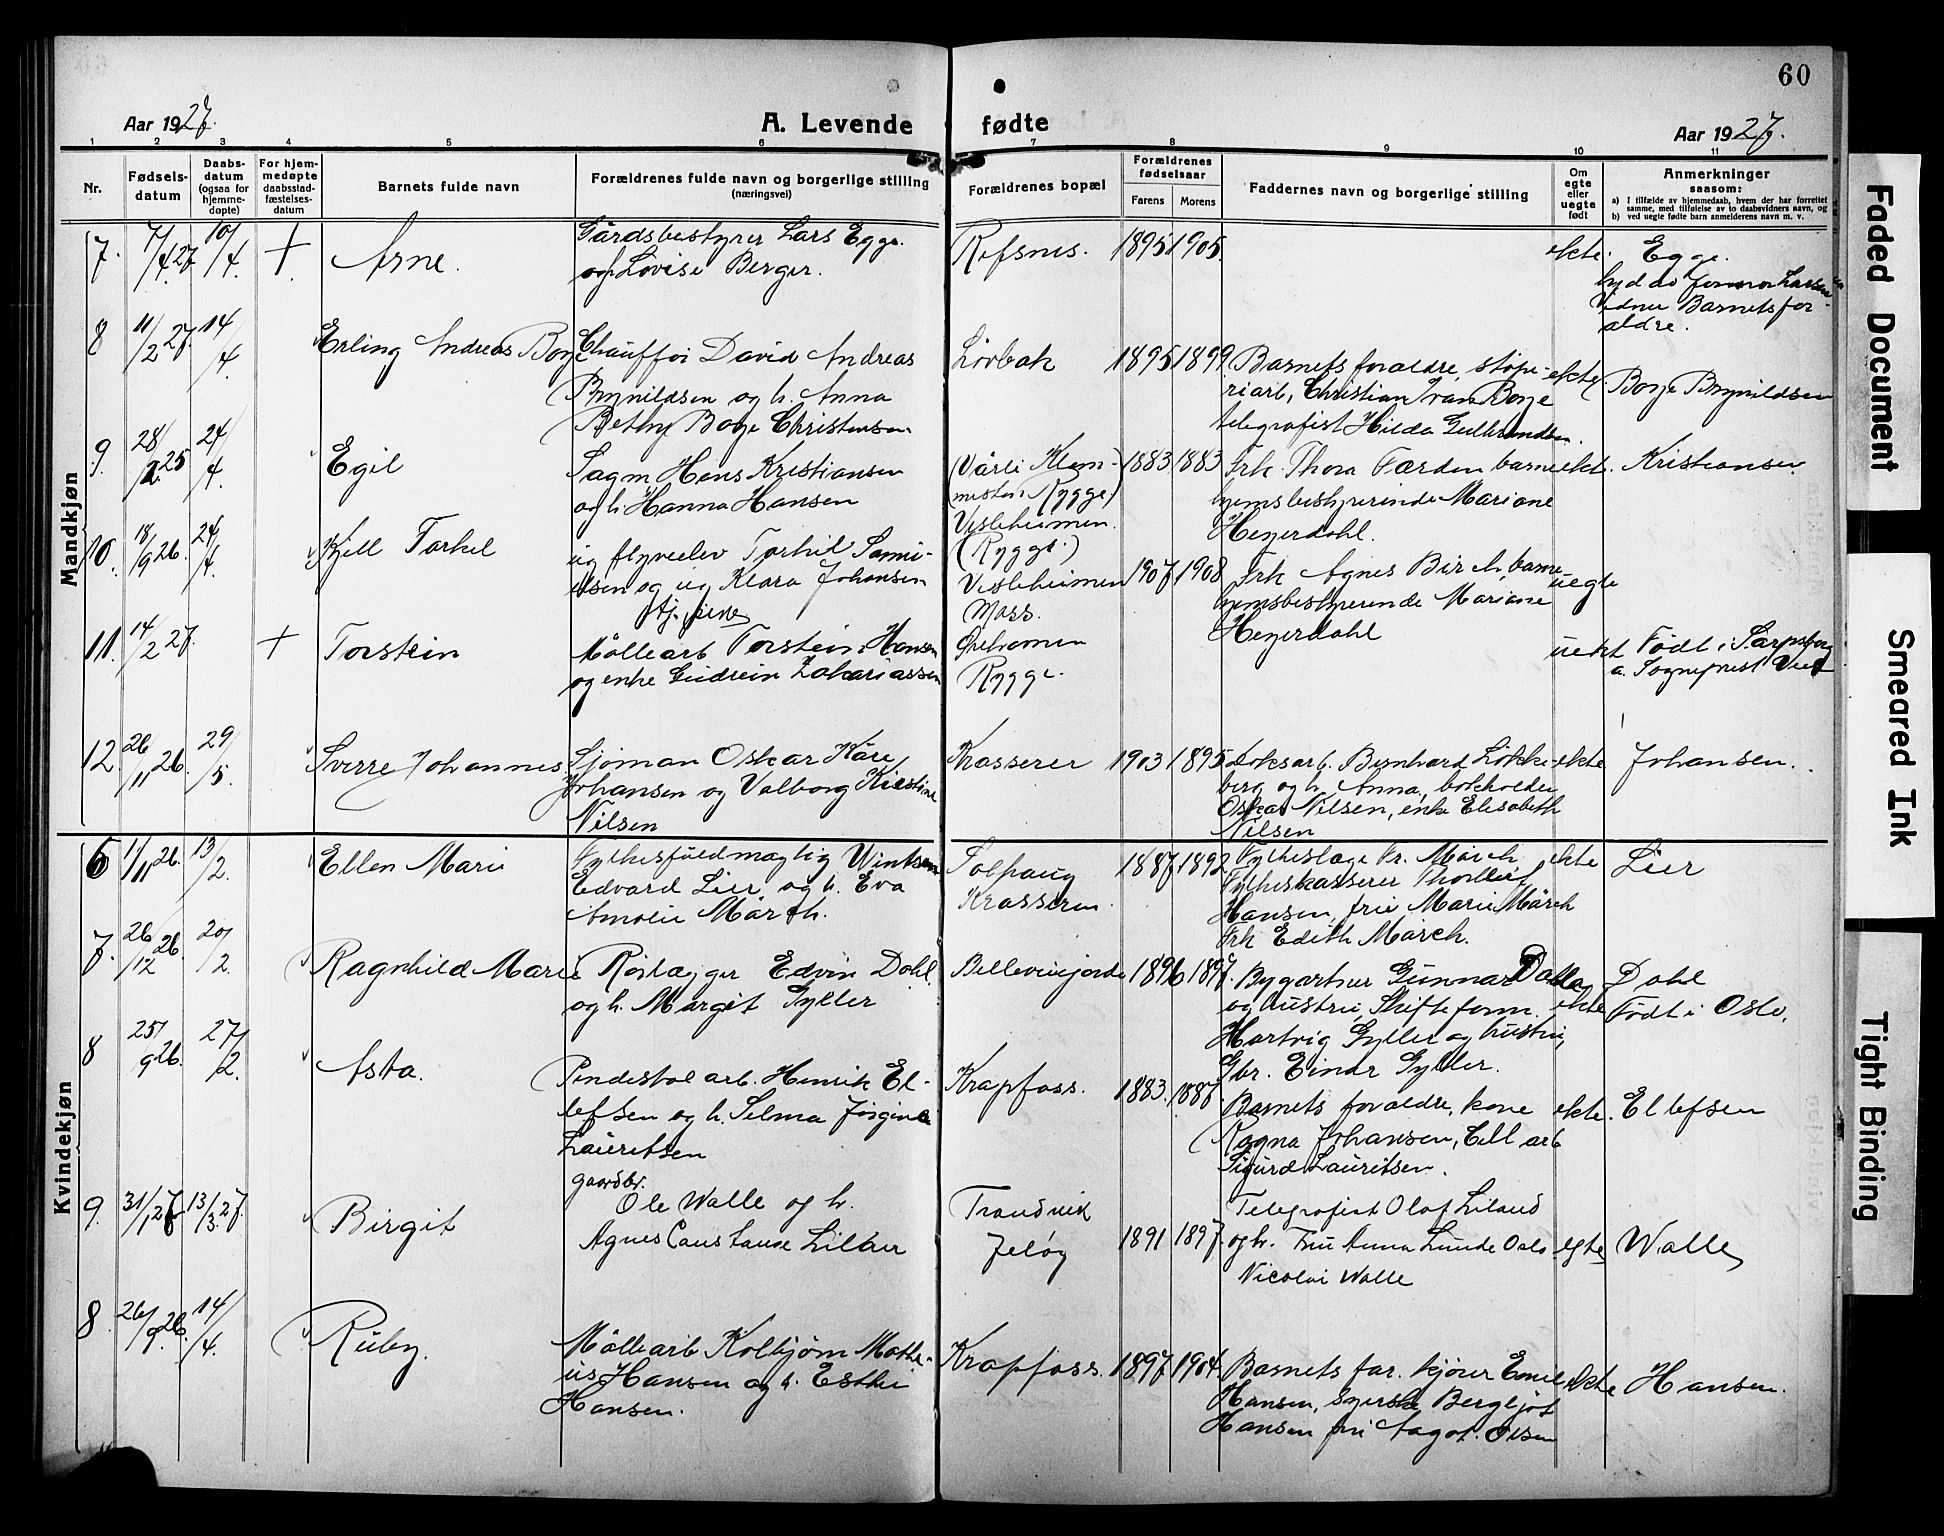 60
Aar 1927.
A. Levende fødte
Aar 1927.
1 2 3 4 5 6 7 8 9 10 11
Nr.
Fødselsdatum
Daabsdatum (ogsaa for hjemmedøpte)
For hjemmedøpte daabsstadfæstelsesdatum
Barnets fulde navn
Forældrenes fulde navn og borgerlige stilling (næringsvei)
Forældrenes bopæl
Forældrenes fødselsaar
Farens Morens
Faddernes navn og borgerlige stilling
Om egte eller uegte født
Anmerkninger saasom:
a) I tilfælde av hjemmedaab, hvem der har forrettet samme, med tilføielse av to daabsvidners navn, og
b) ved uegte fødte barn anmelderens navn m. v.
Mandkjøn
7. 7/4 27 10/4. + Arne.
Gårdsbestyrer Lars Egge.
og h. Lovise Berger.
Refsnes. 1895 1905. ekte. Egge.
Vidner Barnets for-
ældre.
8 11/2 27. 14/4. Erling Andreas Borge
Chauffør David Andreas
Brynildsen og h. Anna
Bethy Borge Christensen
Lövbak 1895 1899
Barnets foraldre, støpe-
riarb, Christian Ivan Borge
telegrafist Hilda Gulbrandsen.
ekte. Borge Brynildsen
9. 28/2 25 24/4. Egil
Sagm Hans Kristiansen
og h. Hanna Hansen
(Vårli Klom-
misten Rygge)
Vesleheimen.
(Rygge.)
1883 1883
Frk. Thora Færden barne
hjemsbestyrerinde Mariane
Heyerdahl.
ekt. Kristiansen
10. 18/9 26. 24/4. Kjell Torkel
ug flyveelev Torkil Samu-
elsen og ug Klara Johansen
Tj. pike
Vesleheimen
Moss.
1907 1908
Frk Agnes Birch, barne
hjemsbestyrerinde Mariane
Heyerdahl
uegte
11. 14/2 27. + Torstein
Møllearb Torstein Hansen
og enke Gudrun Zakariassen
Ørehavnen
Rygge.
uekt Født i Sarpsborg
a. Sogneprest
12. 26/11 26. 29/5. Sverre Johannes
Sjöman Oskar Kåre
Johansen og Valborg Kristine
Nilsen
Krasserer 1903 1895
Loksarb. Bernhard Løkke-
berg og h. Anna, bokholder
Oskar Nilsen, enke Elisabeth
Nilsen
ekte Johansen.
Kvindekjøn
6 11/11 26. 13/2. Ellen Marie
Fylkesfuldmægtig
Edvard Lier og h. Eva
Amalie Mårch.
Solhaug
Krasseren.
1887 1892
Fylkeslæge Fr. Mårch
Fylkeskasserer Thorleif
Hansen, frue Marie Mårch
Frk Edith March.
ekte Lier
7. 26/12 26. 20/2. Ragnhild Marie
Rørlægger Edvin Dahl
og h. Margit Gyller
Bellevuejordet 1896 1897.
Bygartner Gunnar Dahl
og hustru, Skifteform.
Hartvig Gyller og hustru,
Gbr. Einar Gyller.
ekte Dahl
Født i Oslo.
8 25/9 26. 27/2. Asta.
Pindestol arb. Henrik El-
lefsen og h. Selma Jörgine
Lauritsen
Krapfoss. 1883. 1887.
Barnets foraldre, kone
Ragna Johansen, Cell arb
Sigurd Lauritsen.
ekte. Ellefsen
9. 31/1 27 13/3 27. Birgit
gaardbr.
Ole Walle og h.
Agnes Constanse Lilker
Trondvik
Jeløy
1891 1897.
Telegrafist Olaf Liland
og h. Fru Anna Lunde Oslo
Nicolai Walle
egte Walle
8 26/9 26. 14/4. Ruby.
Møllearb Kolbjørn Mathe-
us Hansen og h. Esther
Hansen.
Krapfoss. 1897 1904.
Barnets far. kjörer Emil
Hansen, syerske Bergljot
Hansen fru Aagot. Olsen
ekte Hansen.
Faded Document
Smeared Ink
Tight Binding